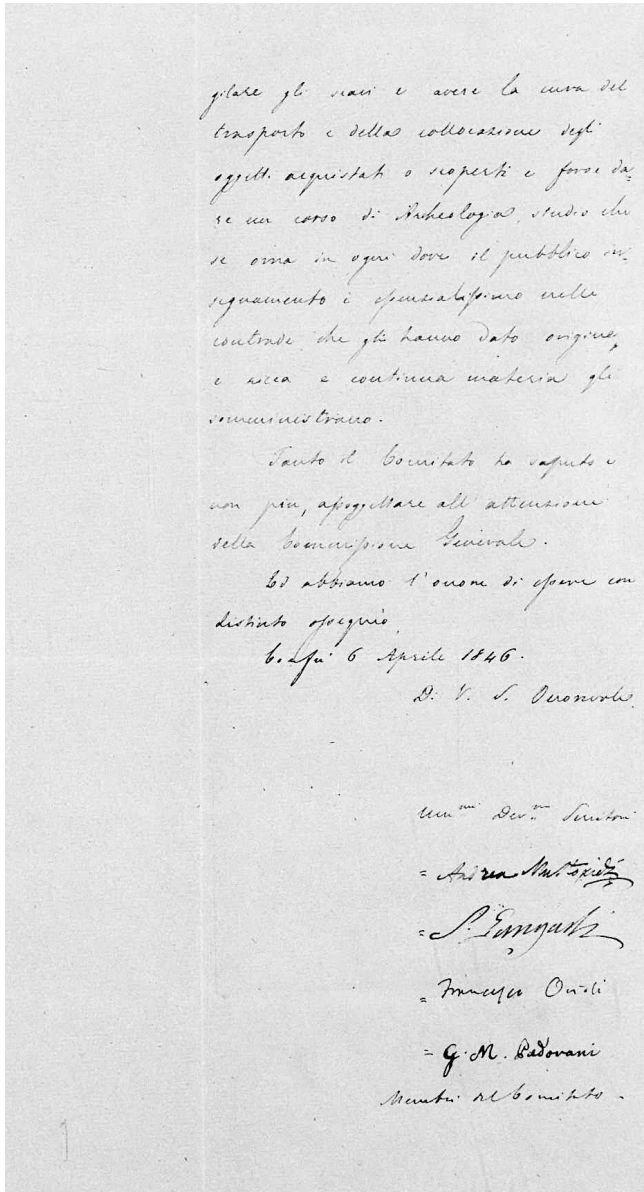 gilare gli scavi e avere la cura del
trasporto e della collocazione degli
oggetti acquistati o scoperti e forse da=
re un corso di Archeologia, studio che
se orna in ogni dove il pubblico in=
segnamento è essenzialissimo nelle
contrade che gli hanno dato origine,
e ricca e continua materia gli
somministrano.
Tanto il Comitato ha saputo e
non più, assoggettare all'attenzione
della Commissione Generale.
Ed abbiamo l'onore di essere con
distinto ossequio
Corfù 6 Aprile 1846.
Di V. S. Onorevole
Um.mi Dev.mi Servitori
= Andrea Mustoxidi
= S.
= Francesco Orioli
= G. M. Padovani
Membri del Comitato.